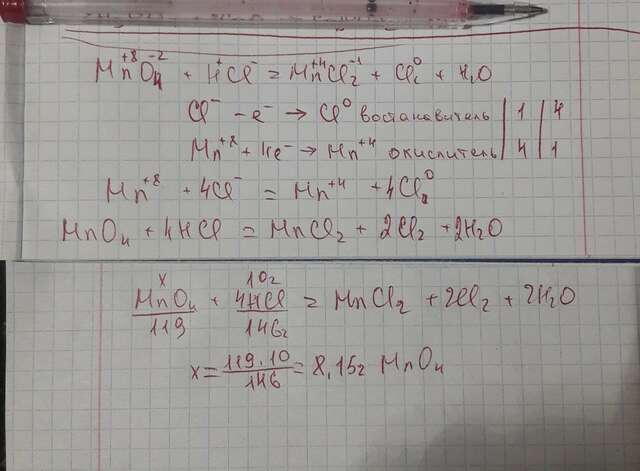 Mn⁺⁸O₄⁻² + H⁺Cl⁻ = Mn⁺⁴Cl₂⁻¹ + Cl₂⁰ + H₂O
Cl⁻ - e⁻ → Cl⁰ востановитель | 1 | 4
Mn⁺⁸ + 4e⁻ → Mn⁺⁴ окислитель | 4 | 1
Mn⁺⁸ + 4Cl⁻ = Mn⁺⁴ + 4Cl⁰
MnO₄ + 4HCl = MnCl₂ + 2Cl₂ + 2H₂O
x 10г
MnO₄ + 4HCl = MnCl₂ + 2Cl₂ + 2H₂O
119 146г
x = 119.10 / 146 = 8,15г MnO₄